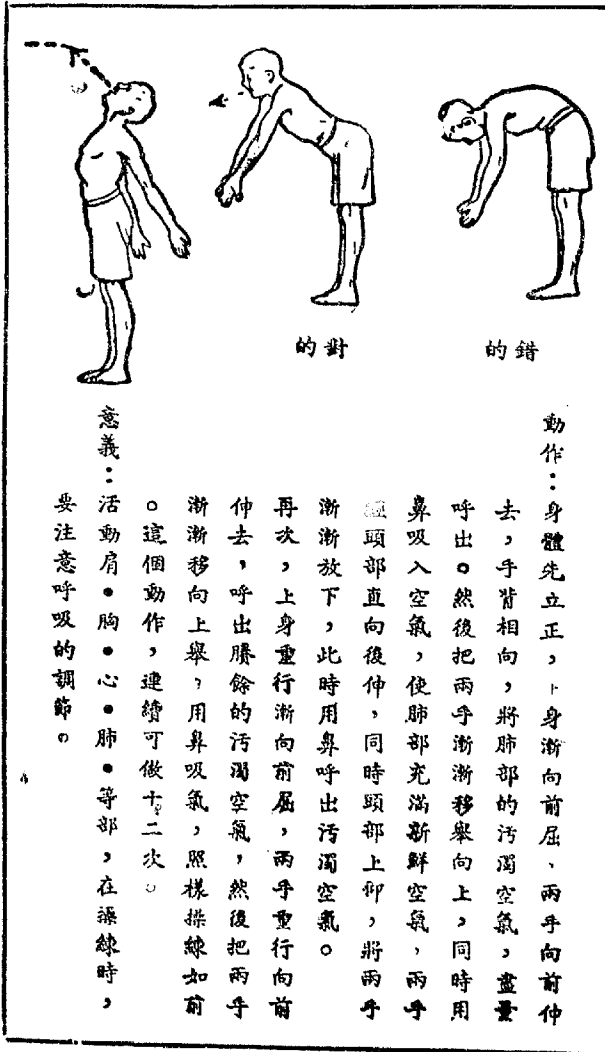 錯的
對的
動作：身體先立正，上身漸向前屈、兩手向前伸
去，手背相向，將肺部的汚濁空氣，盡量
呼出。然後把兩手漸漸移舉向上，同時用
鼻吸入空氣，使肺部充滿新鮮空氣，兩手
頭部直向後伸，同時頭部上仰，將兩手
漸漸放下，此時用鼻呼出汚濁空氣。
再次，上身重行漸向前屈，兩手重行向前
伸去，呼出賸餘的汚濁空氣，然後把兩手
漸漸移向上舉，用鼻吸氣，照樣操練如前
。這個動作，連續可做十二次。
意義：活動肩●胸●心●肺●等部，在操練時，
要注意呼吸的調節。